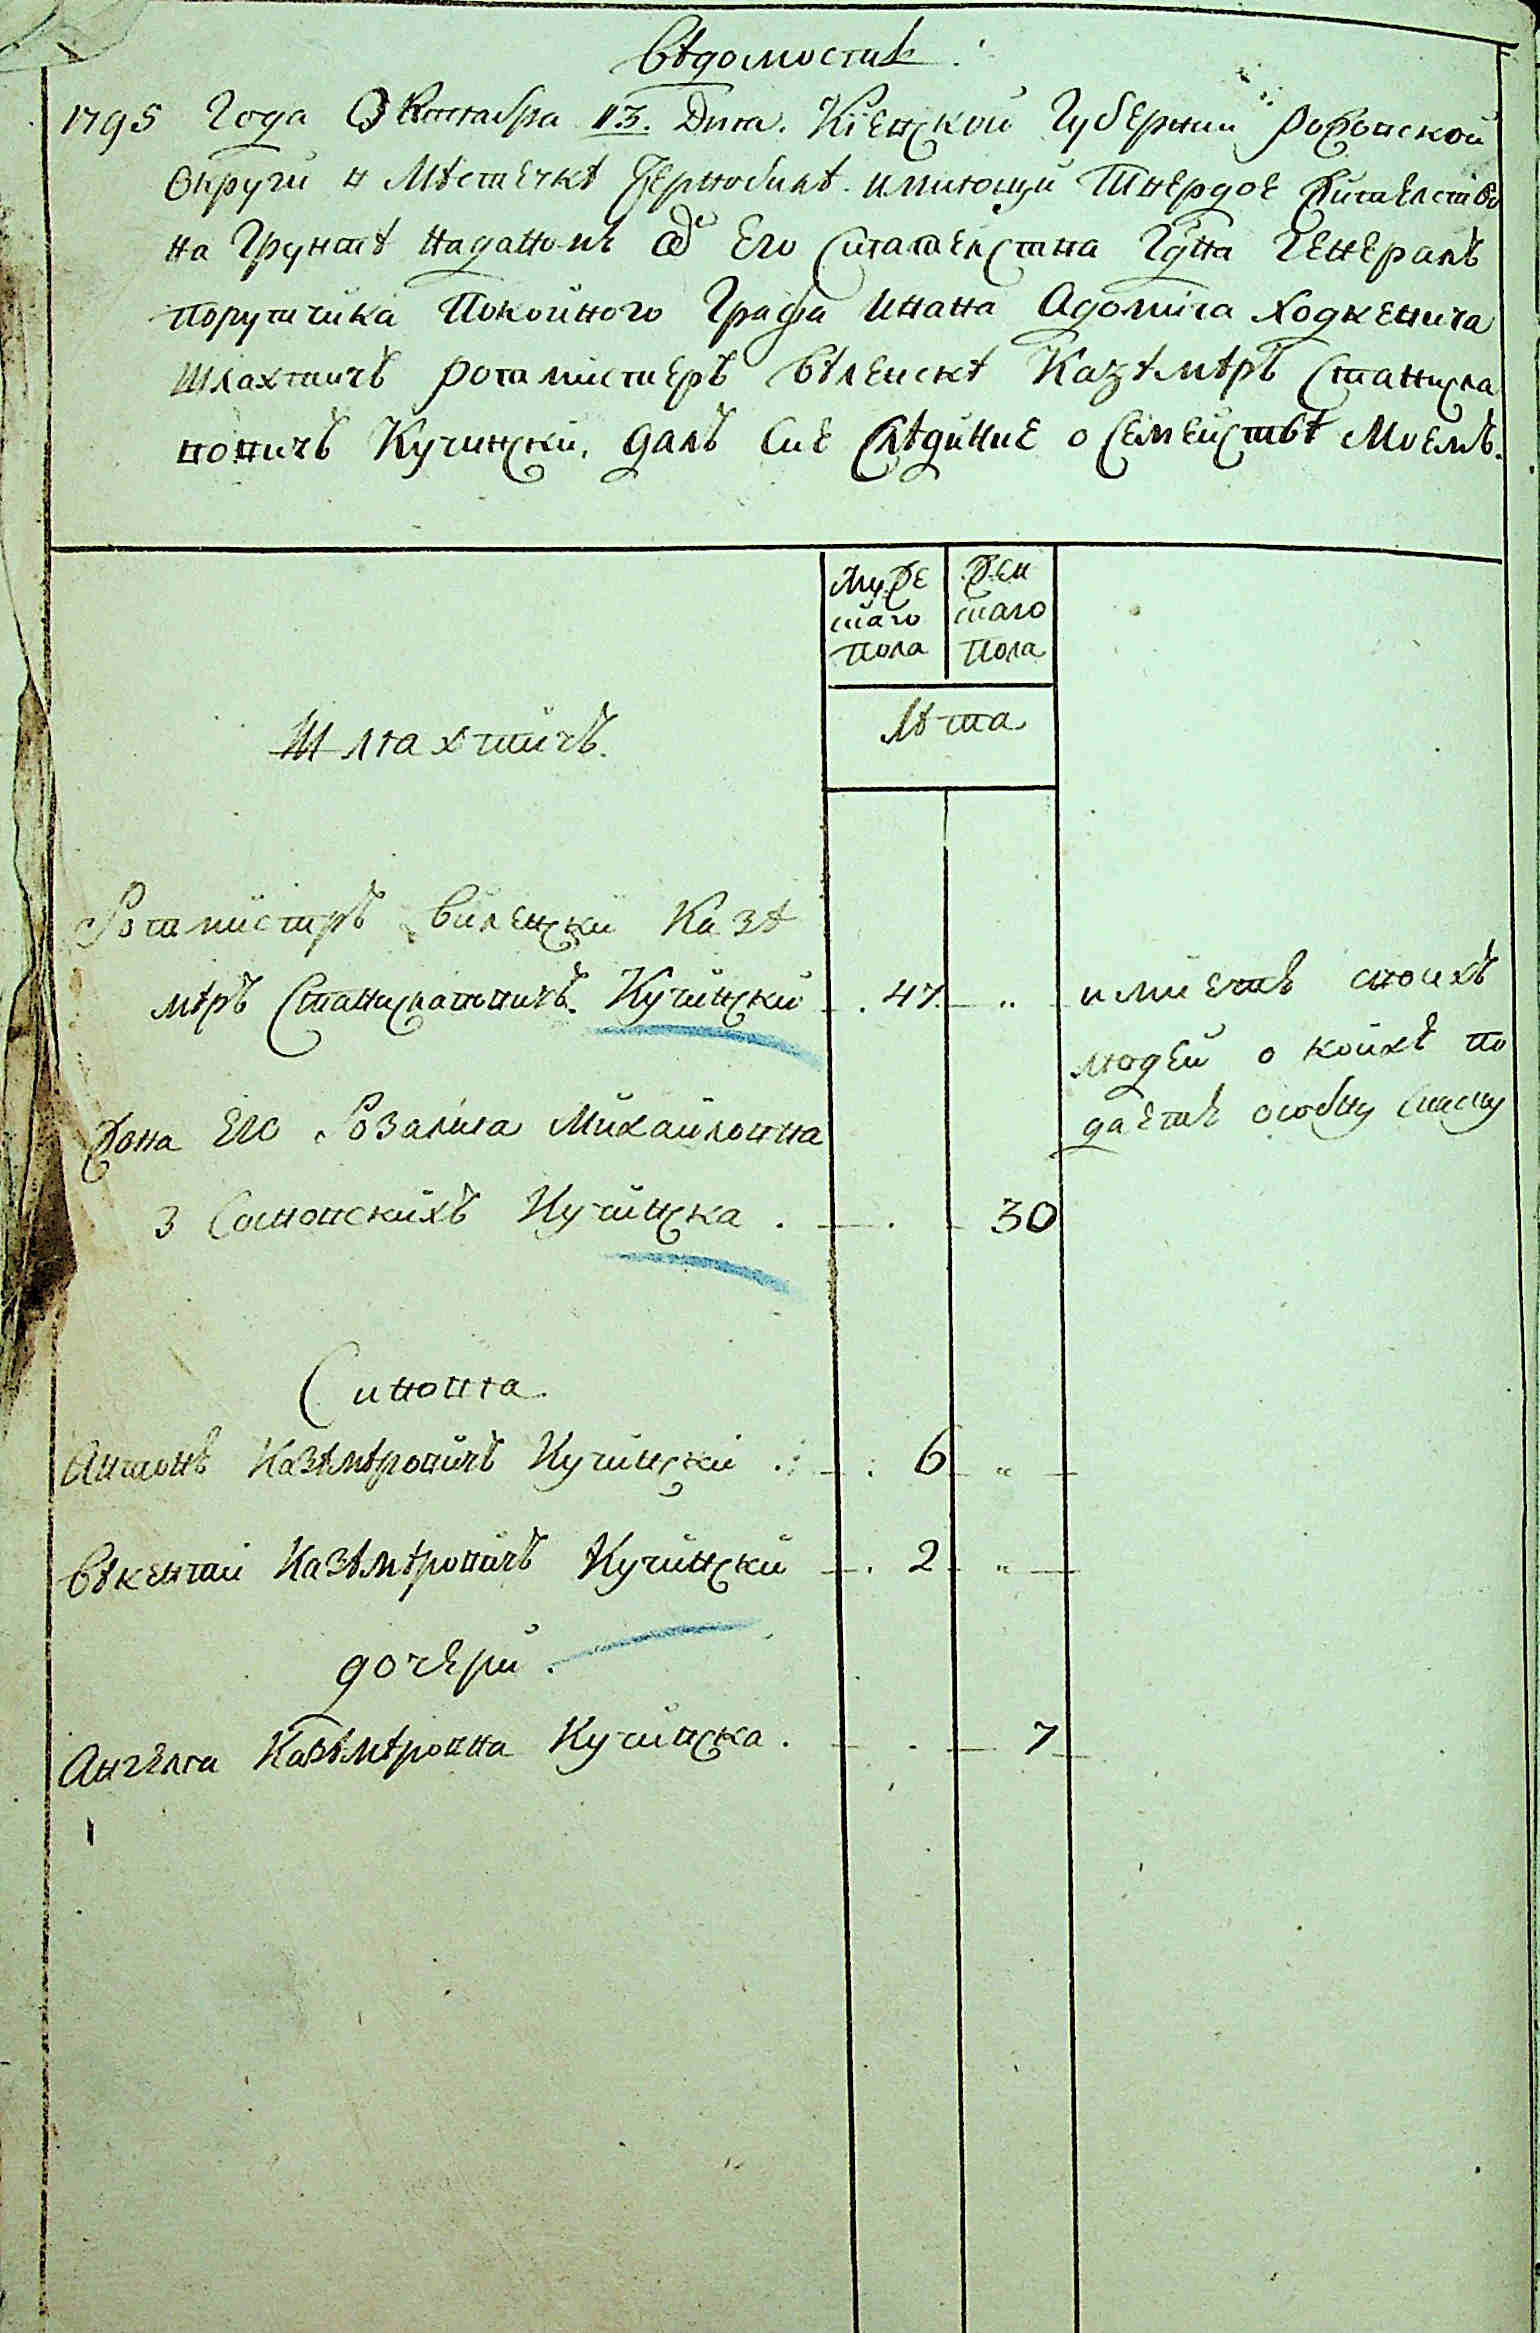 Вѣдомость
1795 Года Октабра 13. Дня. Кіевской Губернии Рожовской
Округи в Мѣстечкѣ Чернобилѣ имиющи Твердое Жителство
на Грунтѣ наданомъ от Его Сиятелства Гдна Генералъ
порутчика Покойного Графа Ивана Адолиία Ходкевича
Шляхтичъ ротмистеръ вѣленскѣ Казѣмѣръ Станисла
вовичъ Кучински, далъ Сие свѣдиние о Семействѣ Моемъ.
Муже Жен
скаго скаго
Пола Пола
Лѣта
Шляхтичъ.
Ротмистръ Виленски Казѣ
мѣръ Станиславовичъ Кучински . 47 „ имиетъ своихъ
людей о койхъ по
Жона Его Розалия Михайловна даетъ особну
З Сосновскихъ Кучинска . . 30
Синовя.
Антонъ Казѣмѣровичъ Кучински . 6 „
Вѣкентий Казѣмѣровичъ Кучински . 2 „
дочери.
Ангеля Казѣмѣровна Кучинска . . 7